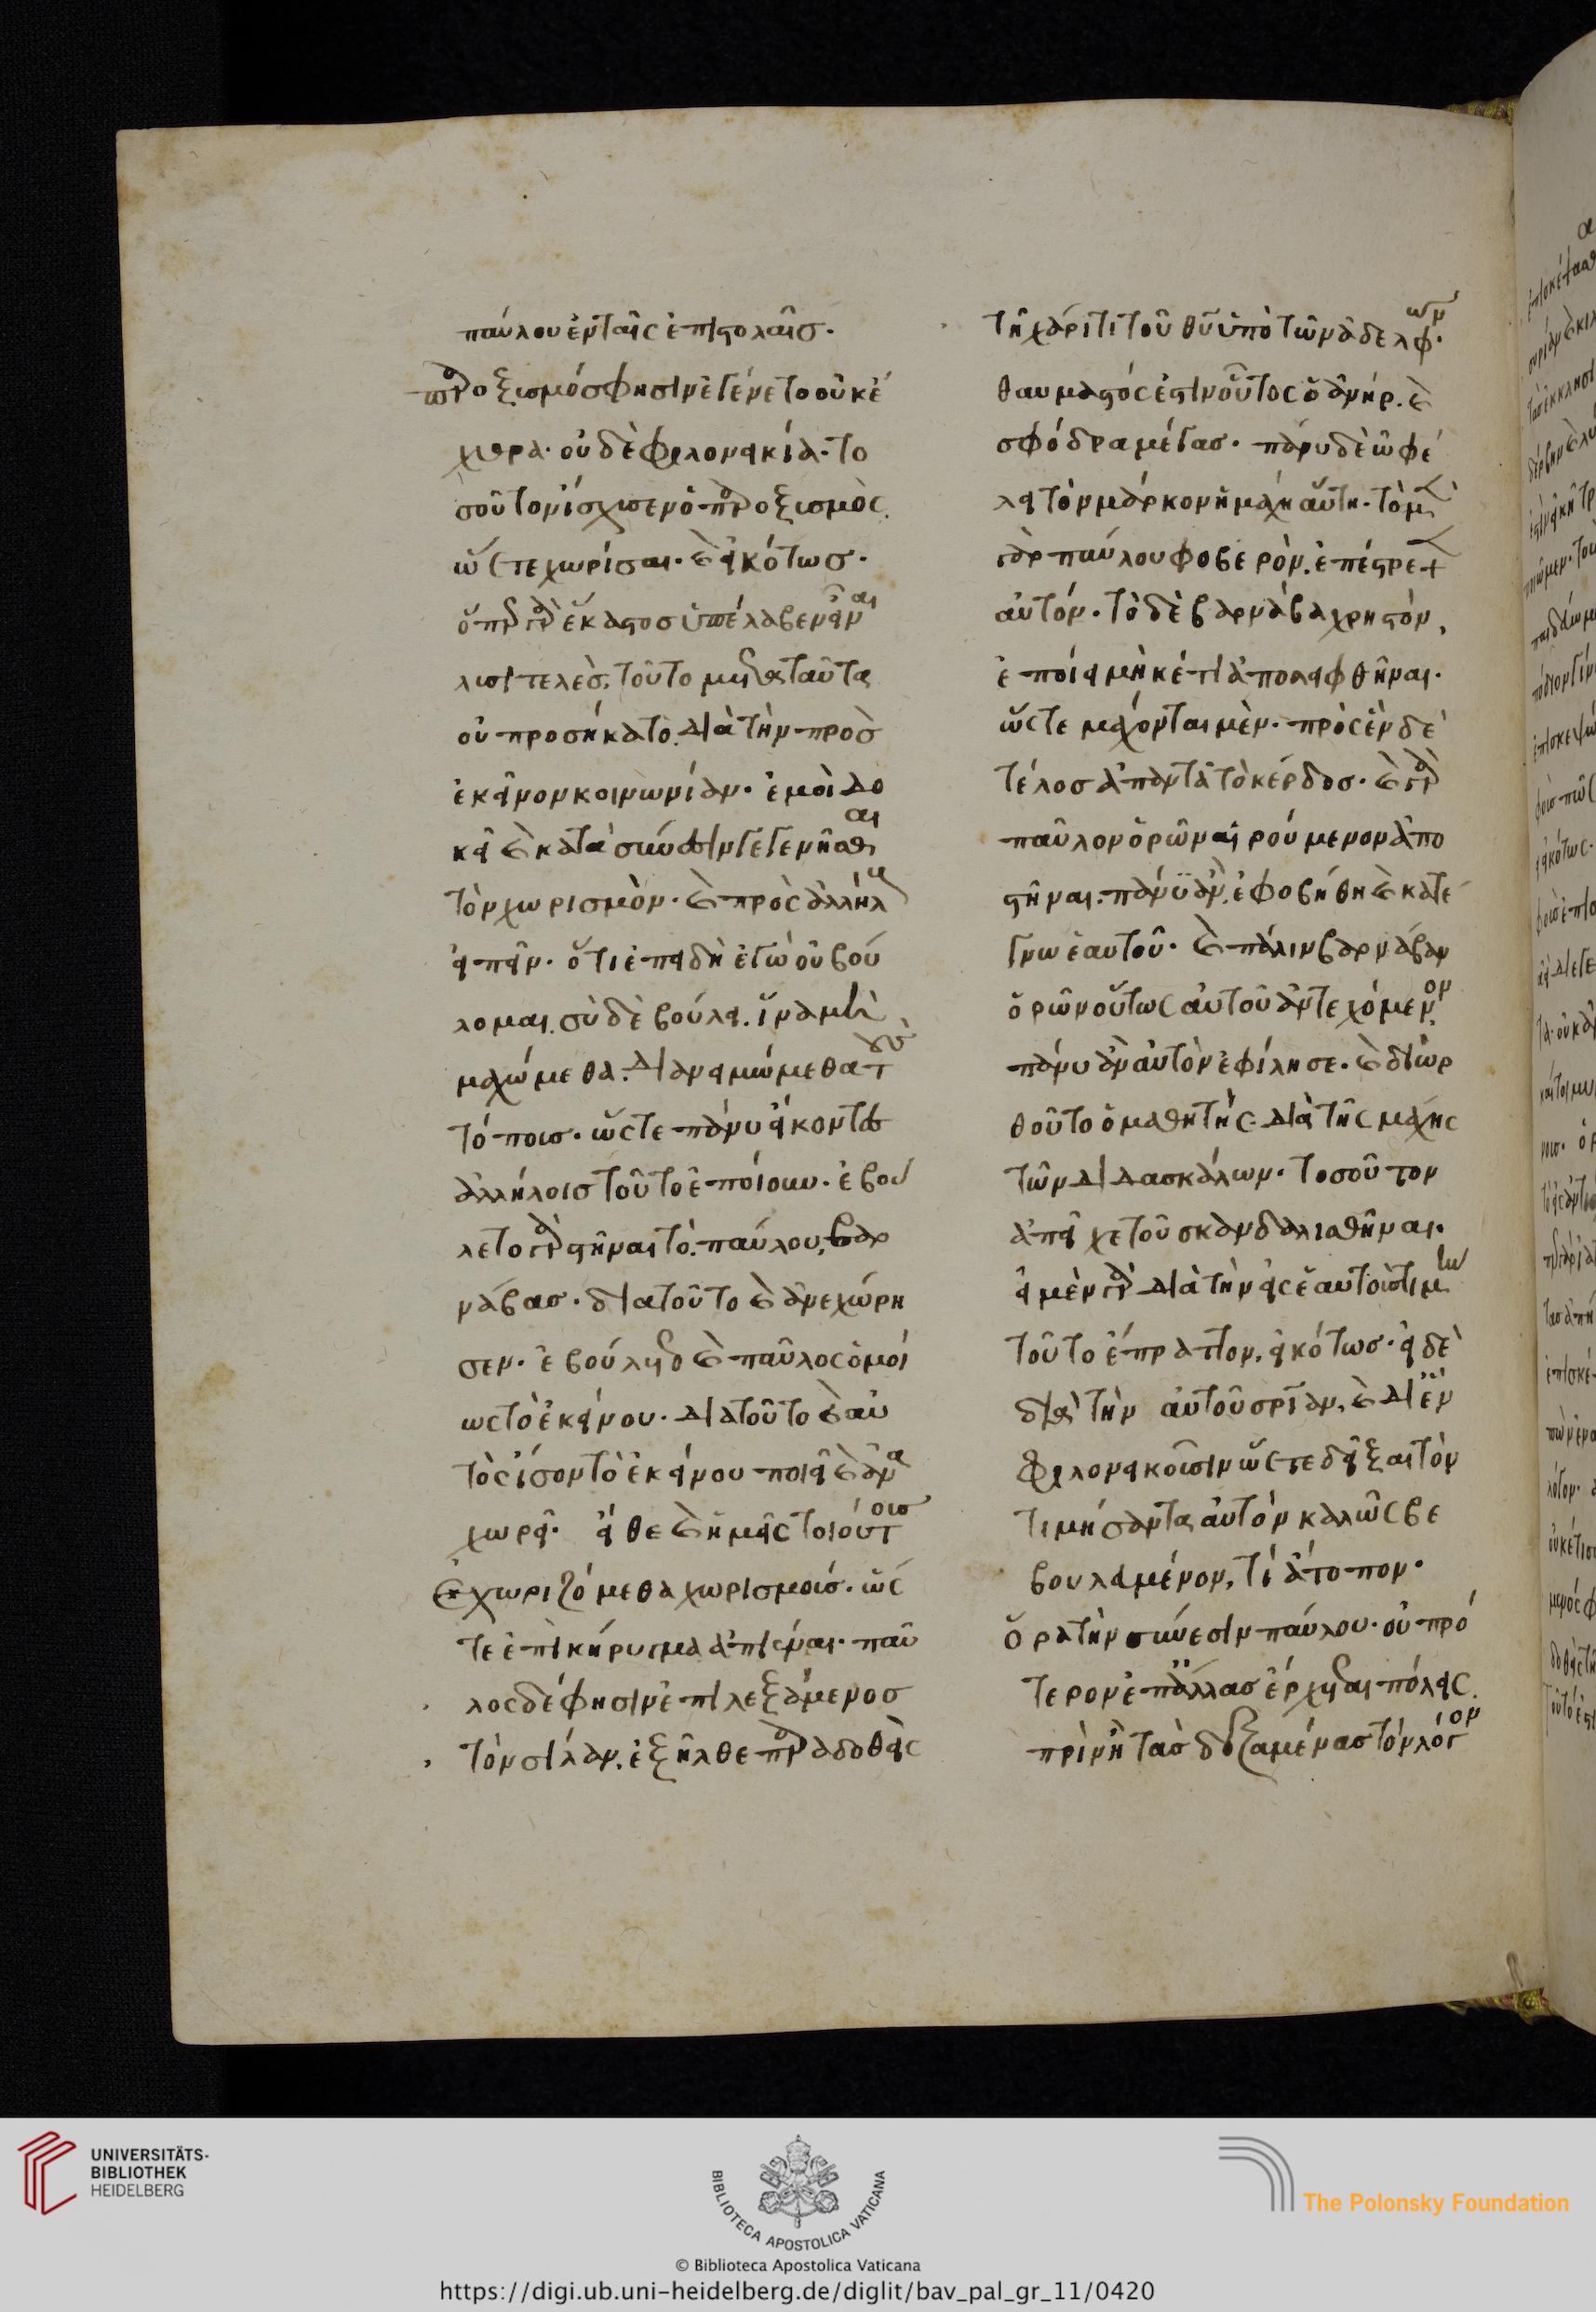 παύλου ἐν ταῖς ἐπιστολαῖσ.
παροξισμόσ φησιν ἐγένετο οὐκ ἔ
χθρα. οὐδὲ φιλονεικία. το
σοῦτον ἴσχυσεν ὁ παροξισμὸς.
ὥστε χωρίσαι. καὶ εἰκότωσ.
ὅπερ γὰρ ἕκαστοσ ὑπέλαβεν εἶναι
λυσιτελὲσ, τοῦτο μετὰ ταῦτα
οὐ προσήκατο. διὰ τὴν πρὸσ
ἐκεῖνον κοινωνίαν. ἐμοὶ δο
κεῖ καὶ κατὰ σύνεσιν γεγενῆσθαι
τὸν χωρισμὸν. καὶ πρὸς ἀλλήλα
εἰπεῖν. ὅτι ἐπειδὴ ἐγὼ οὐ βού
λομαι. σὺ δὲ βούλει. ἵνα μὴ
μαχώμεθα. διανειμώμεθα τοὺσ
τόποισ. ὥστε πάνυ εἴκοντεσ
ἀλλήλοισ τοῦτο ἐποίουν. ἐβού
λετο γὰρ στῆναι τὸ παύλου, βαρ
νάβασ. διατοῦτο καὶ ἀνεχώρη
σεν. ἐβούλετο καὶ παῦλος ὁμοί
ως τὸ ἐκείνου. διατοῦτο καὶ αὐ
τὸς ἴσον τὸ ἐκείνου ποιεῖ καὶ ἀνα
χωρεῖ. εἴθε καὶ ἡμεῖς τοιούτοισ
ἐχωριζόμεθα χωρισμοίσ. ὥσ
τε ἐπὶ κήρυγμα ἀπιέναι. παῦ
λος δέ φησιν ἐπιλεξάμενοσ
τὸν σίλαν. ἐξῆλθε παραδοθεὶς
τῆ χάριτι τοῦ θῦ ὑπὸ τῶν ἀδελφῶν.
θαυμαστός ἐστιν οὗτος ὁ ἀνήρ. καὶ
σφόδρα μέγασ. πάνυ δὲ ὠφέ
λει τὸν μάρκον ἡ μάχη αὕτη. τὸ μὲν
γὰρ παύλου φοβερὸν. ἐπέστρεφε
αὐτόν. τὸ δὲ βαρνάβα χρηστὸν,
ἐποίει μηκέτι ἀπολειφθῆναι.
ὥστε μάχονται μὲν. πρὸς ἓν δὲ
τέλοσ ἀπαντᾶ τὸ κέρδοσ. καὶ γὰρ
παῦλον ὁρῶν αἱρούμενον ἀπο
στῆναι. πάνυ ἂν ἐφοβήθη καὶ κατέ
γνω ἑαυτοῦ. καὶ πάλιν βαρνάβαν
ὁρῶν οὕτως αὐτοῦ ἀντεχόμενον.
πάνυ ἂν αὐτὸν ἐφίλησε. καὶ διωρ
θοῦτο ὁ μαθητὴς. διὰ τῆς μάχης
τῶν διδασκάλων. τοσοῦτον
ἀπεῖχε τοῦ σκανδαλισθῆναι.
εἰ μὲν γὰρ διὰ τὴν εἰς ἑαυτοὺσ τιμὴν
τοῦτο ἔπραττον. εἰκότωσ. εἰ δὲ
διὰ τὴν αὐτοῦ σρίαν, καὶ δι ἓν
φιλονεικοῦσιν ὥστε δεῖξαι τὸν
τιμήσαντα αὐτὸν καλῶς βε
βουλευμένον, τί ἄτοπον.
ὅρα τὴν σύνεσιν παύλου. οὐ πρό
τερον ἐπ ἄλλασ ἔρχεται πόλεις.
πρὶν ἢ τὰσ δεξαμένασ τὸν λόγον
UNIVERSITÄTS-
BIBLIOTHEK
HEIDELBERG
BIBLIOTECA APOSTOLICA VATICANA
The Polonsky Foundation
© Biblioteca Apostolica Vaticana
https://digi.ub.uni-heidelberg.de/diglit/bav_pal_gr_11/0420